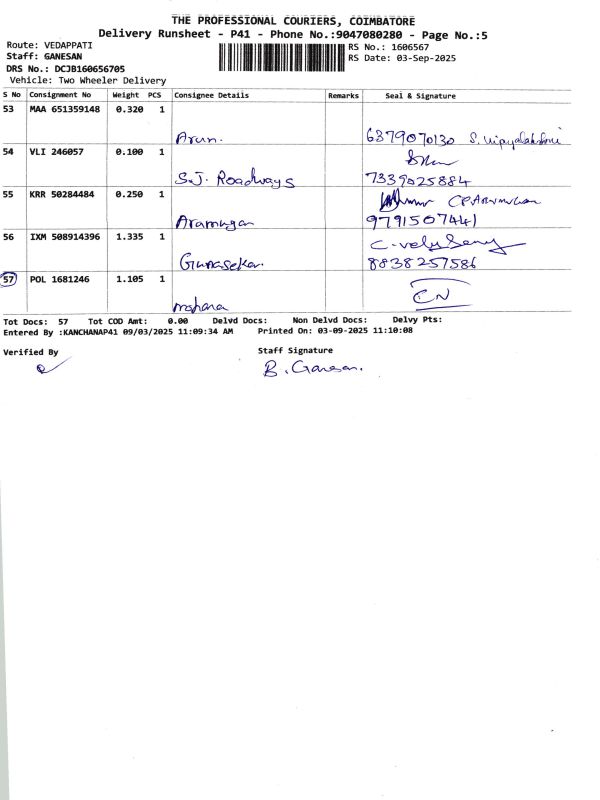 THE PROFESSIONAL COURIERS, COIMBATORE
Delivery Runsheet - P41 - Phone No.:9047080280 - Page No.:5
Route: VEDAPPATI
RS No.: 1606567
Staff: GANESAN
RS Date: 03-Sep-2025
DRS No.: DCJB160656705
Vehicle: Two Wheeler Delivery
S No Consignment No Weight PCS Consignee Details Remarks Seal & Signature
53 MAA 651359148 0.320 1
Arun. 6379070130 S. Vijayalakshmi
54 VLI 246057 0.100 1
S.J. Roadways 7339025884
55 KRR 50284484 0.250 1
Arumugan 9791507441
56 IXM 508914396 1.335 1
Gunasekar. 8838257586
57 POL 1681246 1.105 1 CN
Tot Docs: 57 Tot COD Amt: 0.00 Delvd Docs: Non Delvd Docs: Delvy Pts:
Entered By :KANCHANAP41 09/03/2025 11:09:34 AM Printed On: 03-09-2025 11:10:08
Verified By
Staff Signature
B. Ganesan.